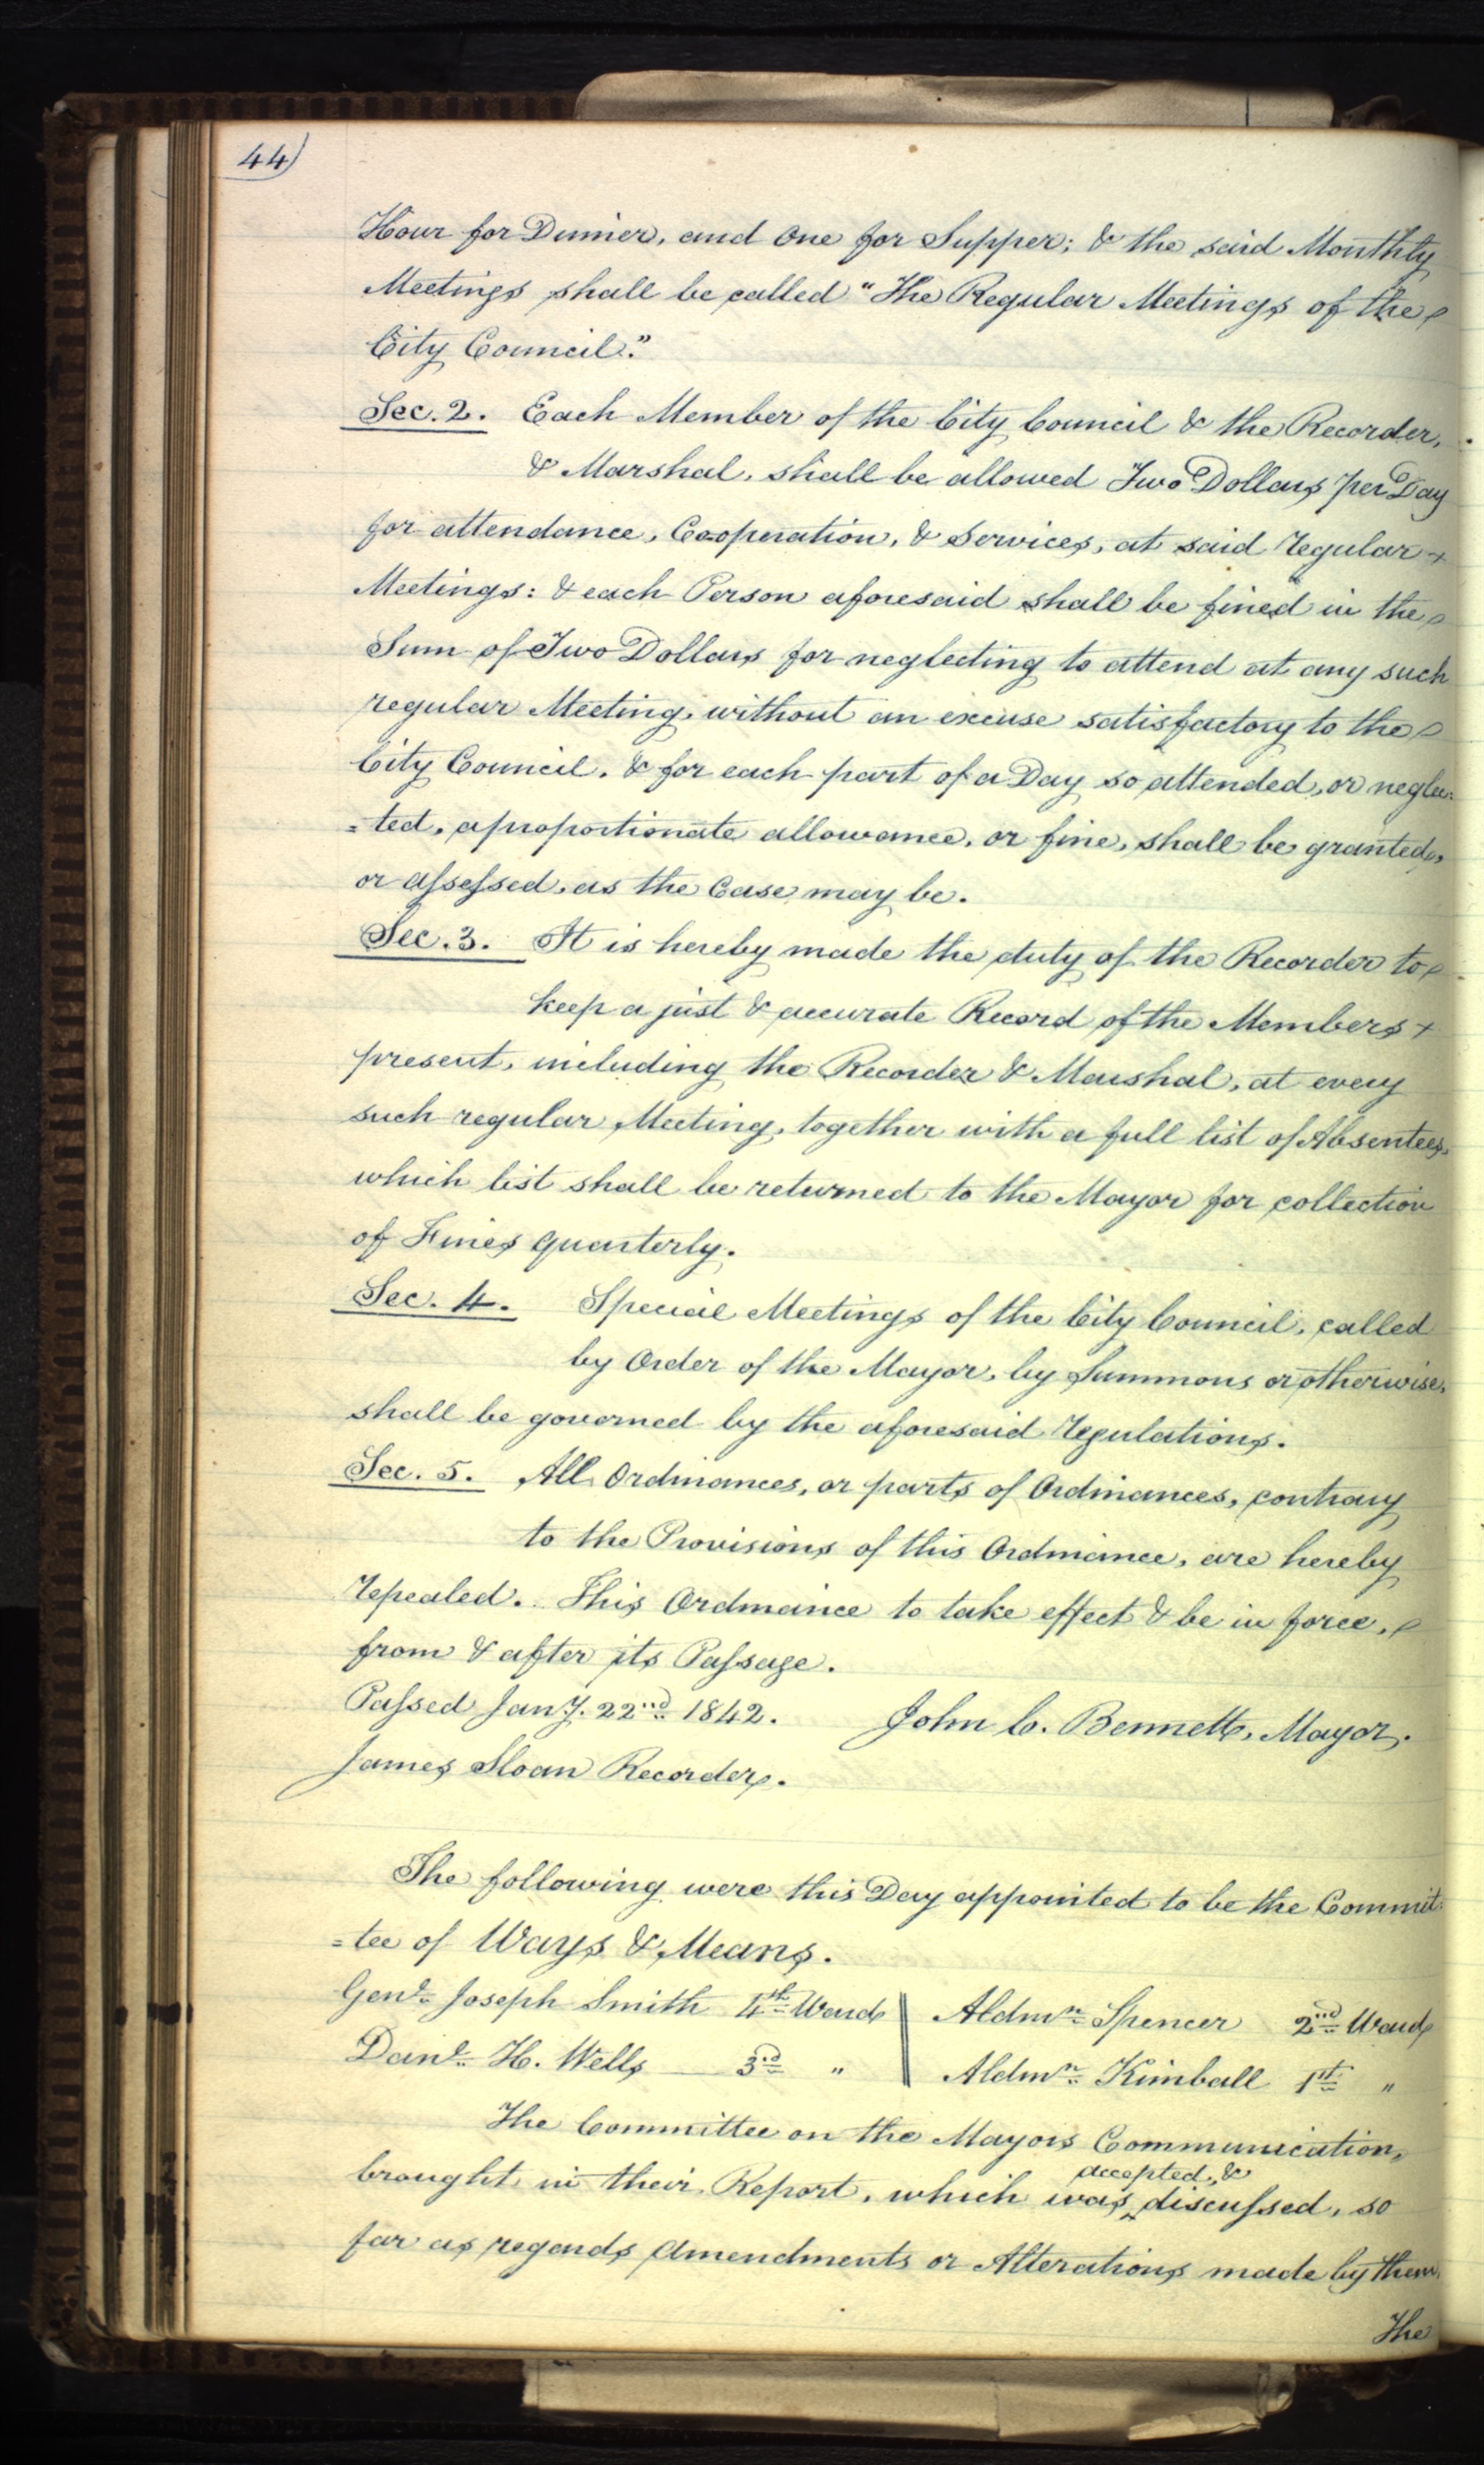 44)
Hour for Dinner, and One for Supper; & the said Monthly
Meetings shall be called "The Regular Meetings of the
City Council."
Sec. 2. Each Member of the City Council & the Recorder,
& Marshal, shall be allowed Two Dollars per Day
for attendance, Cooperation, & Services, at said regular
Meetings: & each Person aforesaid shall be fined in the
Sum of Two Dollars for neglecting to attend at any such
regular Meeting, without an excuse satisfactory to the
City Council, & for each part of a Day so attended, or neglec=
=ted, a proportionate allowance, or fine, shall be granted,
or assessed, as the Case may be.
Sec. 3. It is hereby made the duty of the Recorder to
keep a just & accurate Record of the Members
present, including the Recorder & Marshal, at every
such regular Meeting, together with a full list of Absentees,
which list shall be returned to the Mayor for collection
of Fines quarterly.
Sec. 4. Special Meetings of the City Council, called
by Order of the Mayor, by Summons or otherwise,
shall be governed by the aforesaid regulations.
Sec. 5. All Ordinances, or parts of Ordinances, contrary
to the Provisions of this Ordinance, are hereby
repealed. This Ordinance to take effect & be in force,
from & after its Passage.
Passed Jany. 22nd 1842. John C. Bennett, Mayor.
James Sloan Recorder.
The following were this Day appointed to be the Commit=
=tee of Ways & Means.
Genl. Joseph Smith 4th Ward || Aldmn. Spencer 2nd Ward
Danl. H. Wells 3rd " || Aldmn. Kimball 1st "
The Committee on the Mayors Communication,
accepted, &
brought in their Report, which was ^ discussed, so
far as regards Amendments or Alterations made by them.
The